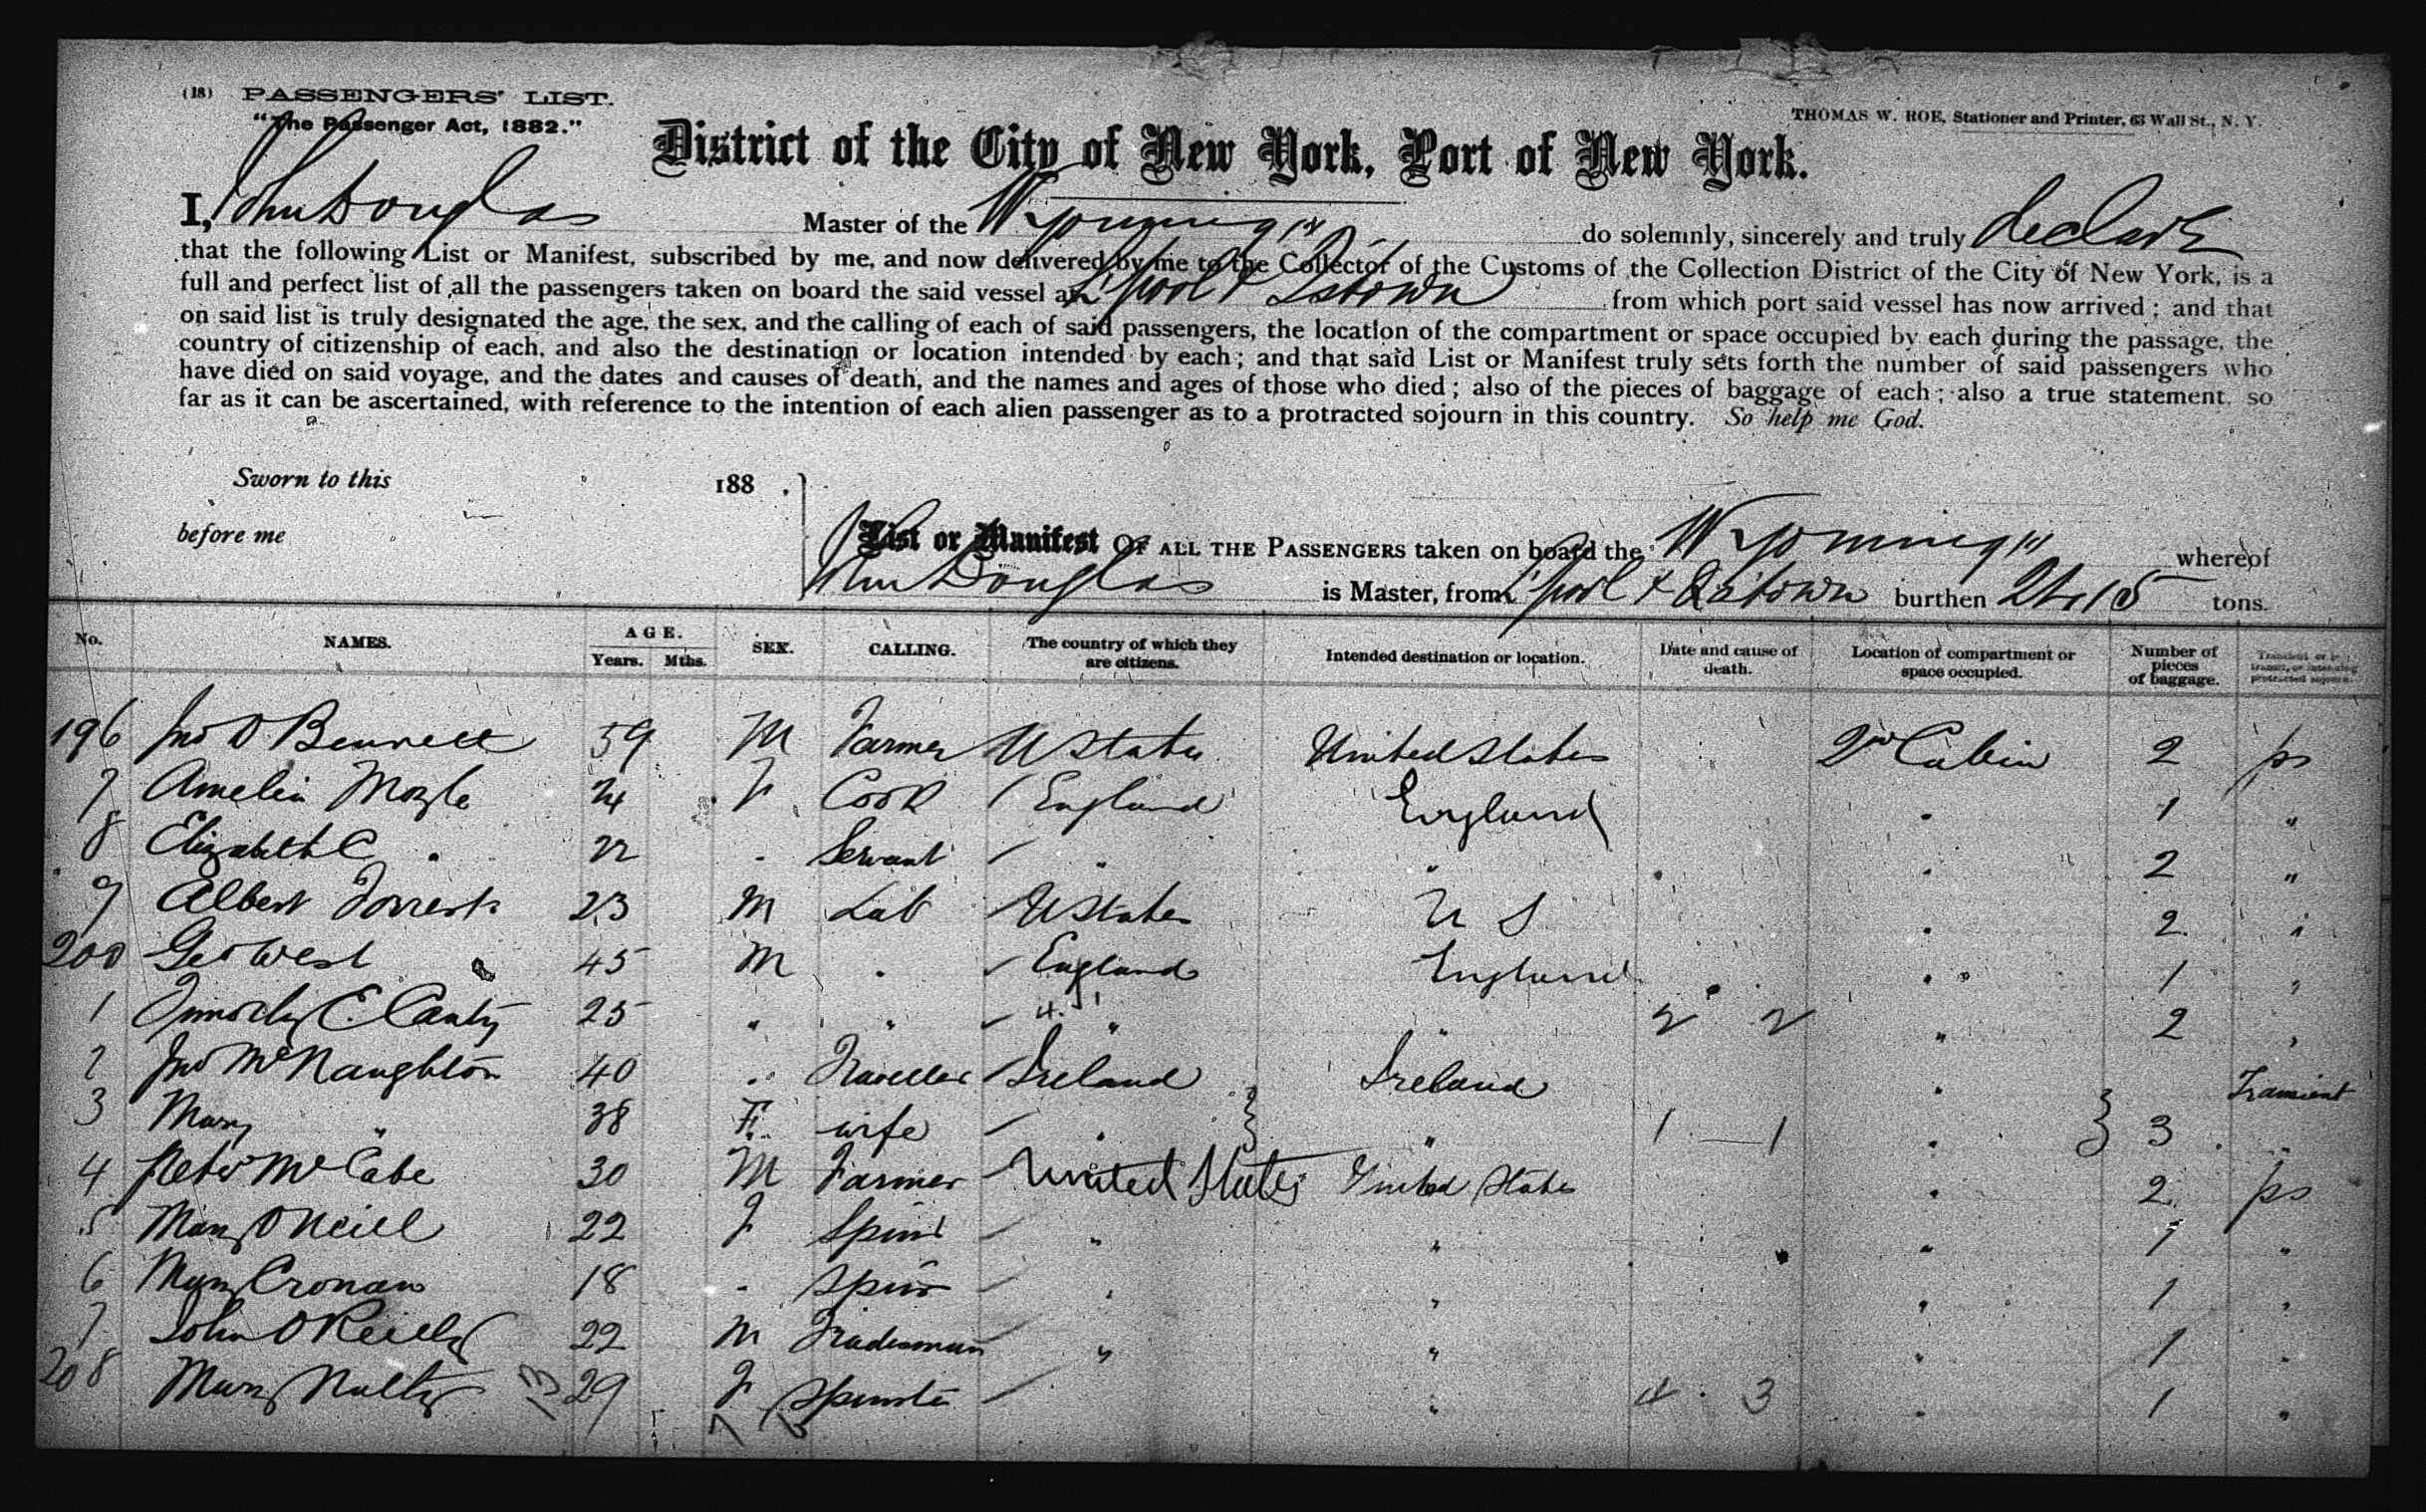 (18) PASSENGERS' LIST.
"The Passenger Act, 1882."
THOMAS W. ROE, Stationer and Printer, 63 Wall St., N. Y.
District of the City of New York, Port of New York.
I, John Douglas Master of the Wyoming do solemnly, sincerely and truly declare
that the following List or Manifest, subscribed by me, and now delivered by me to the Collector of the Customs of the Collection District of the City of New York, is a
full and perfect list of all the passengers taken on board the said vessel at L'pool & Qstown from which port said vessel has now arrived; and that
on said list is truly designated the age, the sex, and the calling of each of said passengers, the location of the compartment or space occupied by each during the passage, the
country of citizenship of each, and also the destination or location intended by each; and that said List or Manifest truly sets forth the number of said passengers who
have died on said voyage, and the dates and causes of death, and the names and ages of those who died; also of the pieces of baggage of each; also a true statement, so
far as it can be ascertained, with reference to the intention of each alien passenger as to a protracted sojourn in this country. So help me God.
Sworn to this 188 .
before me
List or Manifest OF ALL THE PASSENGERS taken on board the Wyoming whereof
John Douglas is Master, from L'pool & Qstown burthen tons.
No. NAMES. AGE. Years. Mths. SEX. CALLING. The country of which they are citizens. Intended destination or location. Date and cause of death. Location of compartment or space occupied. Number of pieces of baggage. Transient or in transit, or intending protracted sojourn.
196 Jno D Bennett 59 M Farmer U States United States 2nd Cabin 2 ps
7 Amelia 24 F Cook England England " 1 "
8 Elizabeth C " 22 " Servant " " " 2 "
9 Albert Forrest 23 M Lab U States U S " 2 "
200 Geo West 45 M " England England " 1 "
1 Timothy E. Canty 25 " " " " 2 2 " 2 "
2 Jno McNaughton 40 " Traveller Ireland Ireland " Transient
3 Mary " 38 F wife " " 1 — 1 " 3 "
4 Peter McCabe 30 M Farmer United States United States " 2 ps
5 Mary O Neill 22 F Spins " " " 1 "
6 Mary Cronan 18 " Spins " " " 1 "
7 John O Reilly 22 M Tradesman " " " 1 "
208 Mary Nulty 13 29 F Spinster " 4 . 3 " 1 "
7